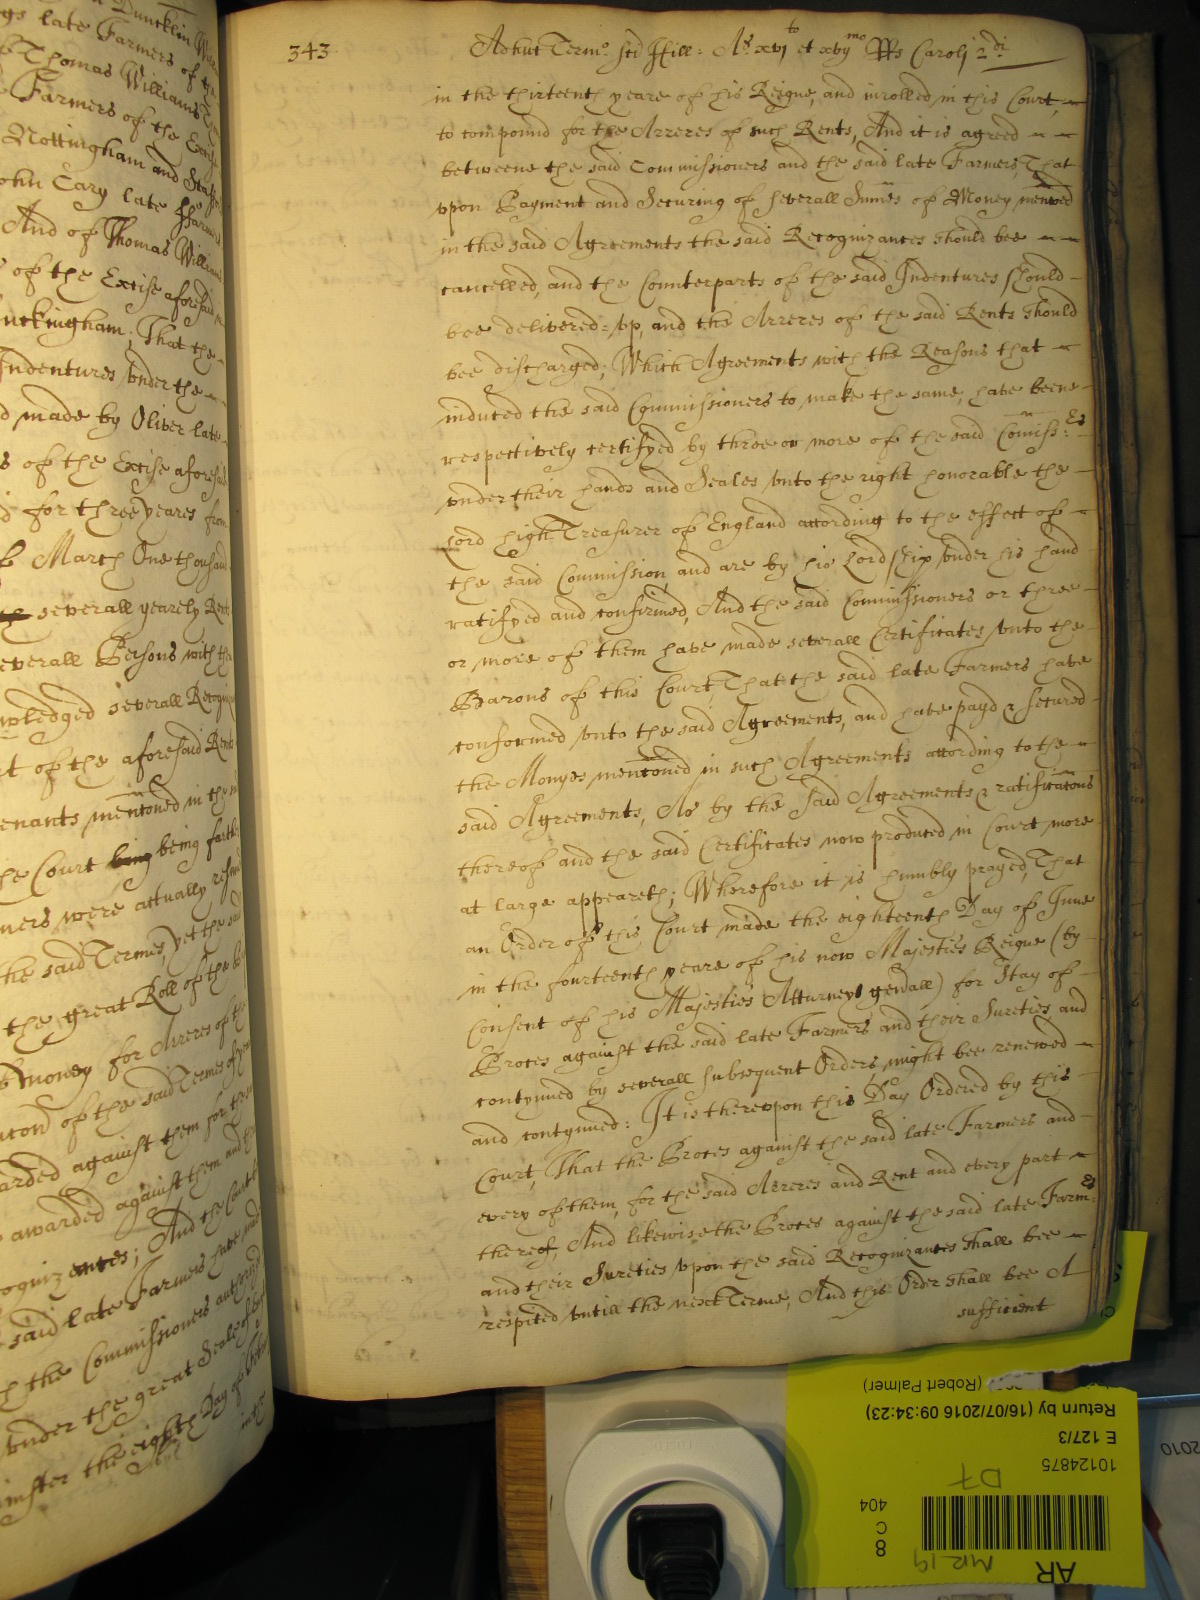 Duncklin
gs late Farmers of the
Thomas Williams
Farmers of the Excise
Nottingham and
ohn Cary late
And of Thomas Willia
of the Excise aforesaid
uckingham; That the
Indentures vnder the
d made by Oliver late
s of the Excise aforesai
for three yeares from
March One thousand
severall yearely Rent
everall Persons with th
wledged severall Recogni
t of the aforesaid Rent
enants menc̄oned in the
he Court being being farth
mers were actually
the said Termes, yet the said
the great Roll of the
money for Arreres of the
of the said Termes of
arded against them for
awarded against them and
ognizances; And the Court
said late Farmers have
the Commissioners
vnder the great Seale of
inster the eighth Day of
343
Adhuc Termo sci Hill: Ao xvjto et xvijmo RRs Caroli 2di
in the thirteenth yeare of his Reigne, and inrolled in this Court,
to compound for the Arreres of such Rents, And it is agreed
betweene the said Commissioners and the said late Farmers, That
vpon Payment and Securing of severall Sum̄es of Money menc̄oed
in the said Agreements the said Recognizances should bee
cancelled, and the Counterparts of the said Indentures should
bee delivered=vp, and the Arreres of the said Rents should
bee discharged; Which Agreements with the Reasons that
induced the said Commissioners to make the same, have beene
respectively certifyed by three or more of the said Com̄iss:rs
vnder their hands and Seales vnto the right honorable the
Lord high Treasurer of England according to the effect of
the said Commission, and are by his Lordship vnder his hand
ratifyed and confirmed, And the said Commissioners or three
or more of them have made severall Certificates vnto the
Barons of this Court That the said late Farmers have
conformed vnto the said Agreements, and have payd & secured
the Monyes menc̄oned in such Agreements according to the
said Agreements, As by the said Agreements & ratificac̄ons
thereof and the said Certificates now produced in Court more
at large appeareth; Wherefore it is humbly prayed, That
an Order of this Court made the eighteenth Day of June
in the fourteenth yeare of his now Majesties Reigne (by
Consent of his Majesties Atturney gen̄all) for Stay of
Proces against the said late Farmers and their Sureties, and
contynued by severall subsequent Orders, might bee renewed
and contynued: It is therevpon this Day Ordered by this
Court, That the Proces against the said late Farmers and
every of them, for the said Arreres and Rent and every part
thereof, And likewise the Proces against the said late Farm:rs
and their Sureties vpon the said Recognizances shall bee
respited vntill the next Terme, And this Order shall bee A
sufficient
(Robert Palmer)
Return by (16/07/2016 09:34:23)
E 127/3
10124875
D7
404
C
8
MR 19
AR
2010